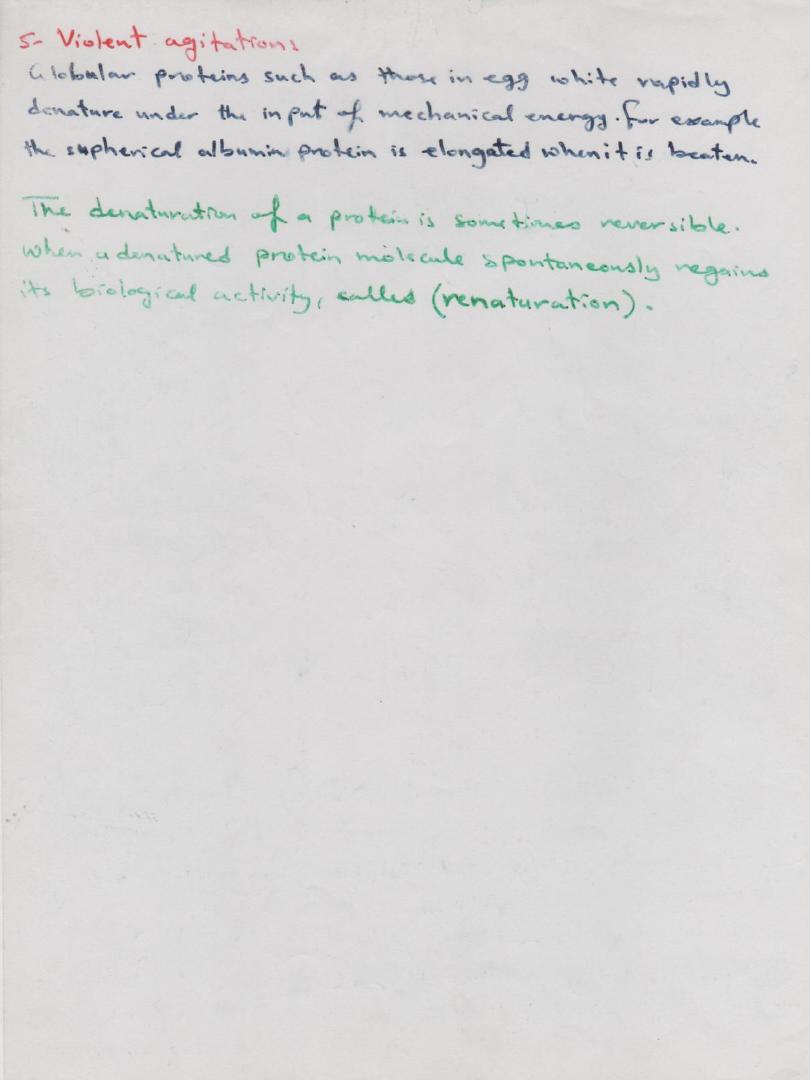 5- Violent agitations
Globular proteins such as those in egg white rapidly
denature under the input of mechanical energy. for example
the supherical albumin protein is elongated when it is beaten.
The denaturation of a protein is sometimes reversible.
when a denatured protein molecule spontaneously regains
its biological activity, called (renaturation).